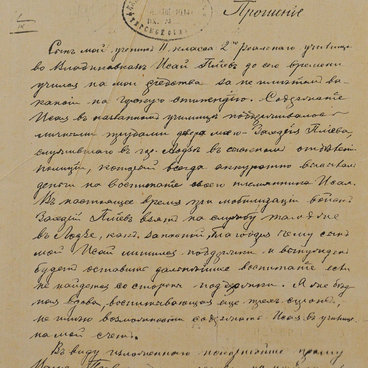 Прошеніе
Сынъ мой ученикъ II класса 2го реальнаго училища
во Владикавказѣ Исай Пліевъ до сего времени
учился на мои средства за не имѣніемъ ва-
кансіи на стипендію. Содержаніе
Исая въ названномъ училищѣ поддерживалось
личными трудами моего Захарія Пліева,
служившаго въ гор. Лодзь въ сыскномъ отдѣленіи
полиціи, который всегда аккуратно высылалъ
деньги на воспитаніе своего племянника Исая.
Въ настоящее время при мобилизаціи войскъ
Захарій Пліевъ взятъ на службу тамъ же
въ Лодзѣ, какъ запасной благодаря чему сынъ
мой Исай лишился поддержки и вынужденъ
будетъ оставить дальнѣйшее воспитаніе если
не найдется со стороны поддержки. А я же бѣд-
ная вдова, воспитывающая еще трехъ сиротъ,
не имѣю возможности содержать Исая въ училищѣ
на мой счетъ.
Въ виду изложеннаго покорнѣйше прошу